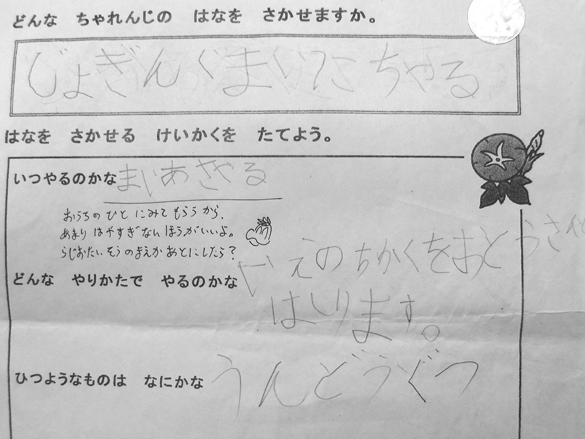 どんな ちゃれんじの はなを さかせますか。
じょぎんぐまいにちやる
はなを さかせる けいかくを たてよう。
いつやるのかな まいあさやる
おうちの ひと に みて もらうから、
あまり はやすぎない ほうが いいよ。
らじおたいそうの まえか あとに したら？
どんな やりかたで やるのかな いえのちかくをおとうさん
はしります。
ひつようなものは なにかな うんどうぐつ